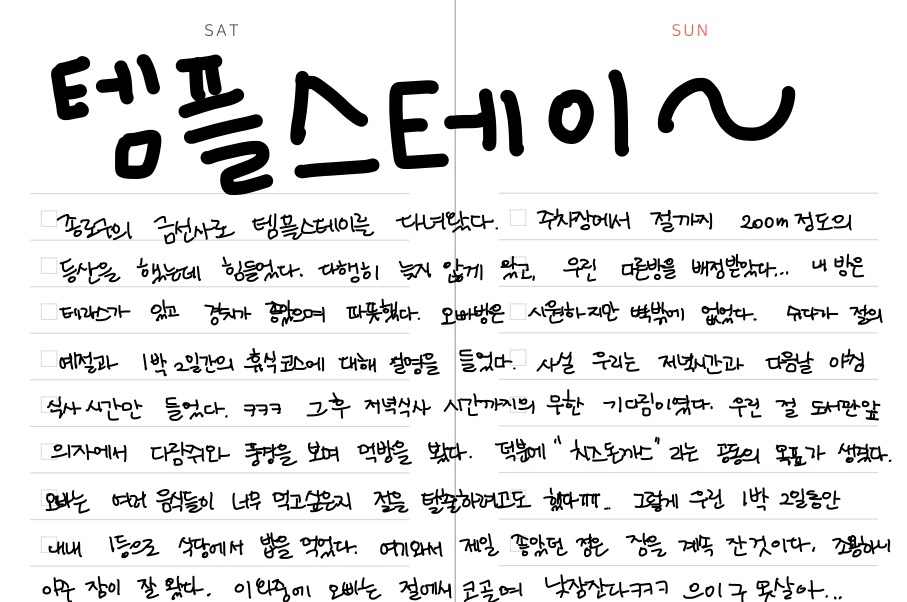 SAT SUN
템플스테이~
종로구의 금선사로 템플스테이를 다녀왔다. 주차장에서 절까지 200m 정도의
등산을 했는데 힘들었다. 다행히 늦지 않게 왔고, 우린 다른방을 배정받았다... 내 방은
테라스가 있고 경치가 좋았으며 따뜻했다. 오빠방은 시원하지만 벽밖에 없었다. 쉬다가 절의
예절과 1박 2일간의 휴식코스에 대해 설명을 들었다. 사실 우리는 저녁시간과 다음날 아침
식사 시간만 들었다. ㅋㅋㅋ 그후 저녁식사 시간까지의 무한 기다림이였다. 우린 절 도서관앞
의자에서 다람쥐와 풍경을 보며 먹방을 봤다. 덕분에 "치즈돈까스" 라는 공동의 목표가 생겼다.
오빠는 여러 음식들이 너무 먹고싶은지 절을 탈출하려고도 했다ㅠㅠ.. 그렇게 우린 1박 2일동안
내내 1등으로 식당에서 밥을 먹었다. 여기와서 제일 좋았던 점은 잠을 계속 잔 것이다. 조용하니
아주 잠이 잘 왔다. 이 와중에 오빠는 절에서 코골며 낮잠잔다ㅋㅋㅋ 으이구 못살아...